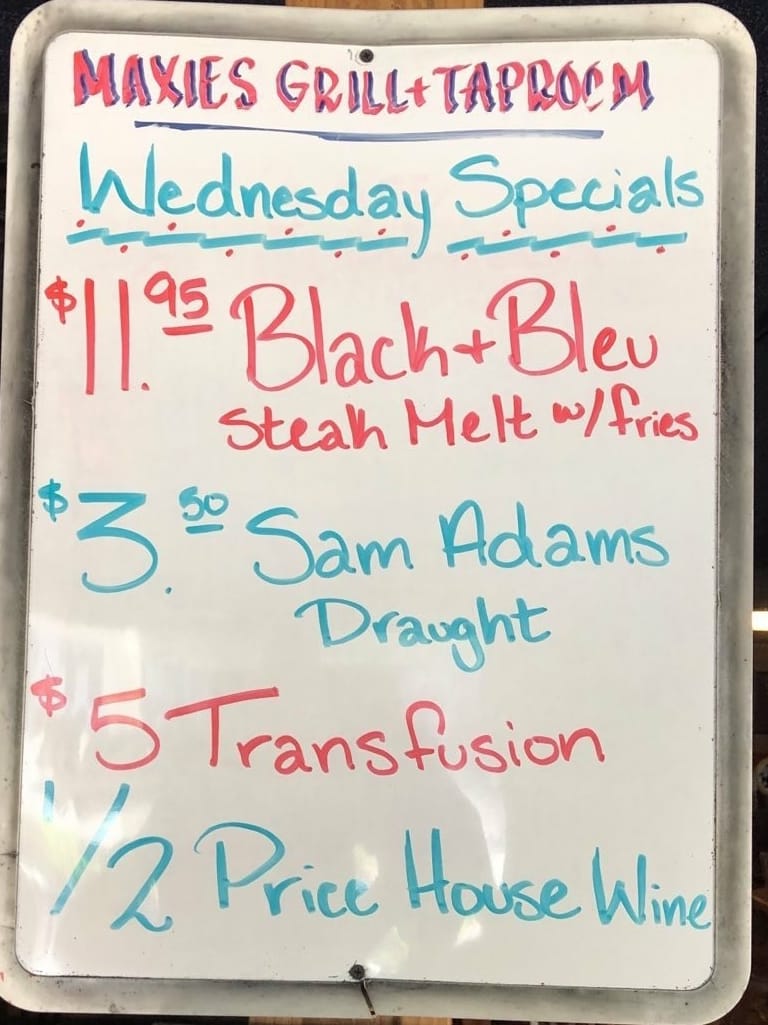 MAXIES GRILL+TAPROOM
Wednesday Specials
$11.95 Black+Bleu
Steak Melt w/fries
$3.50 Sam Adams
Draught
$5 Transfusion
1/2 Price House Wine